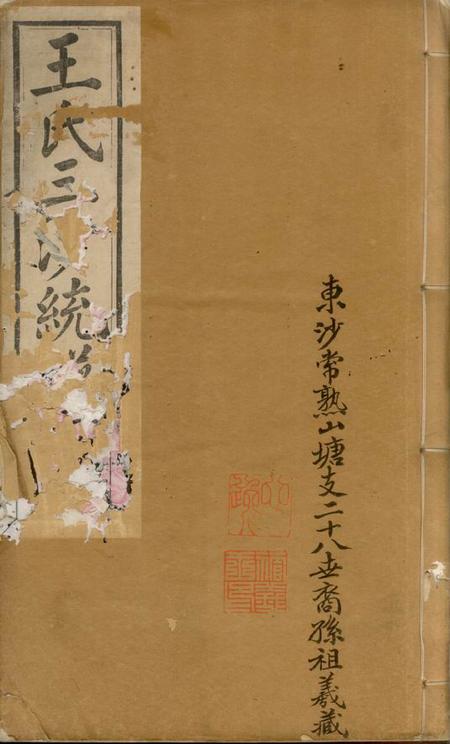 東沙常熟山塘支二十八世裔孫祖羲藏
王氏三沙統